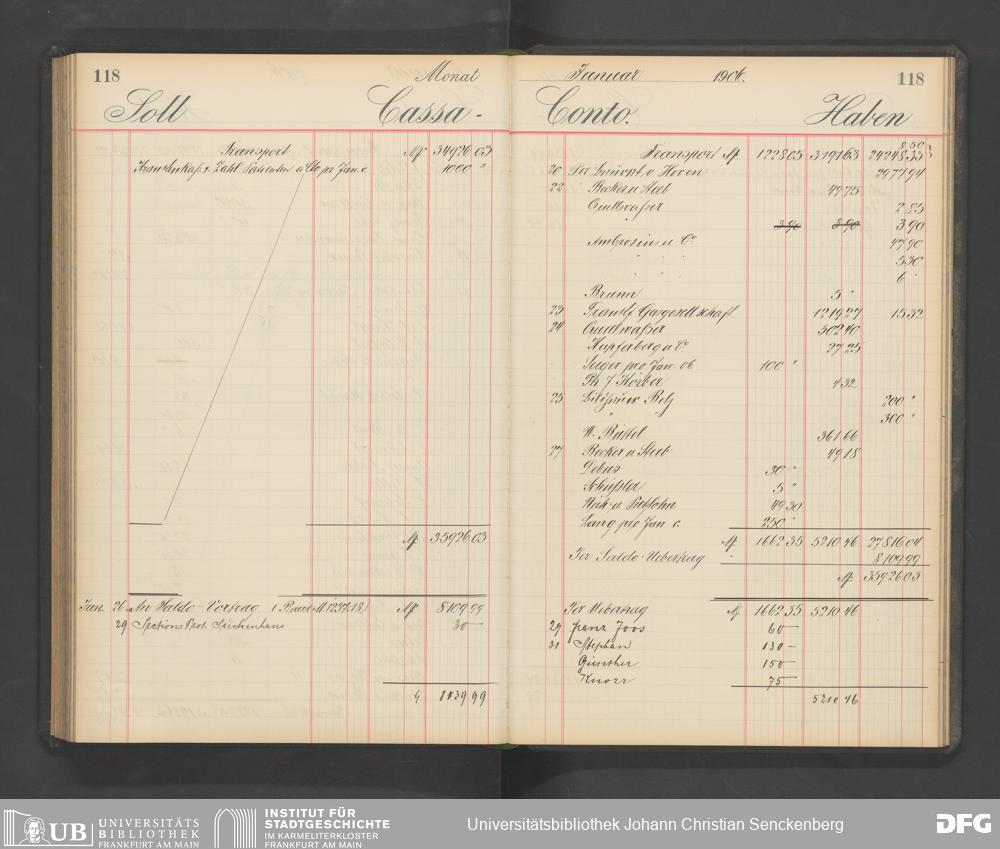 118 Monat
Soll Cassa-
Transport M 34926 03
Zahl. Patienten a Cto pr Jan. c. 1000 "
M 35926 03
Jan. 26 An Saldo-Vortrag M 8109 99
29 Sections Prot. Siechenhaus 30 —
8139 99
Januar 1906. 118
Conto. Haben
8 50
Transport M 1228 05 3191 63 24248 35
20 Per v. Hoven 2977 94
22 " Becker u Steeb 49 75
Quellwasser 2 85
" 3 90 3 90 3 90
Ambrosius u Co 47 90
" " " 5 30
" " " 6 "
Brunn 5 "
23 Frankf. Gasgesellschaft 1219 27 15 32
24 Quellwasser 302 40
Kupferberg u Co 27 25
Seeger pro Jan. 06 100 "
Ph. J. Körber 4 32
25 200 "
" " 300 "
W. Büttel 361 66
27 Becker u Steeb 49 18
Debus 30 "
Schüssler 5 "
49 30
Lang pro Jan. c. 250 "
M 1662 35 5210 46 27816 04
Per Saldo-Uebertrag 8109 99
M 35926 03
Per Uebertrag M 1662 35 5210 46
29 Franz Joos 60 —
31 Stephan 130 —
Günther 150 —
Knorr 75 —
5210 46
UB UNIVERSITÄTS
BIBLIOTHEK
FRANKFURT AM MAIN
INSTITUT FÜR
STADTGESCHICHTE
IM KARMELITERKLOSTER
FRANKFURT AM MAIN
Universitätsbibliothek Johann Christian Senckenberg
DFG